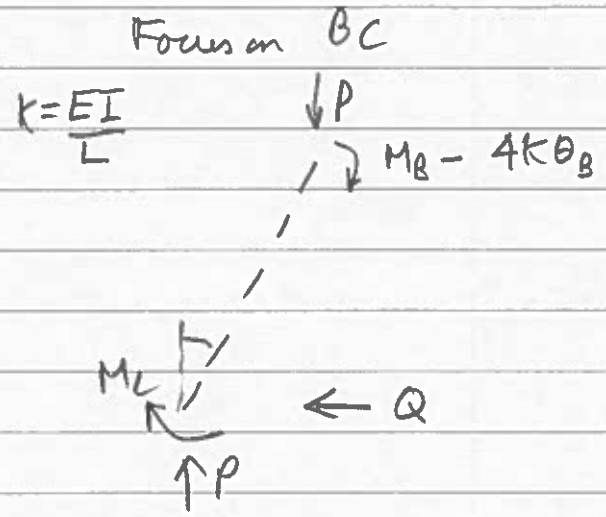 Focus on BC
K = EI/L
↓ P
M_B - 4Kθ_B
M_C
← Q
↑ P